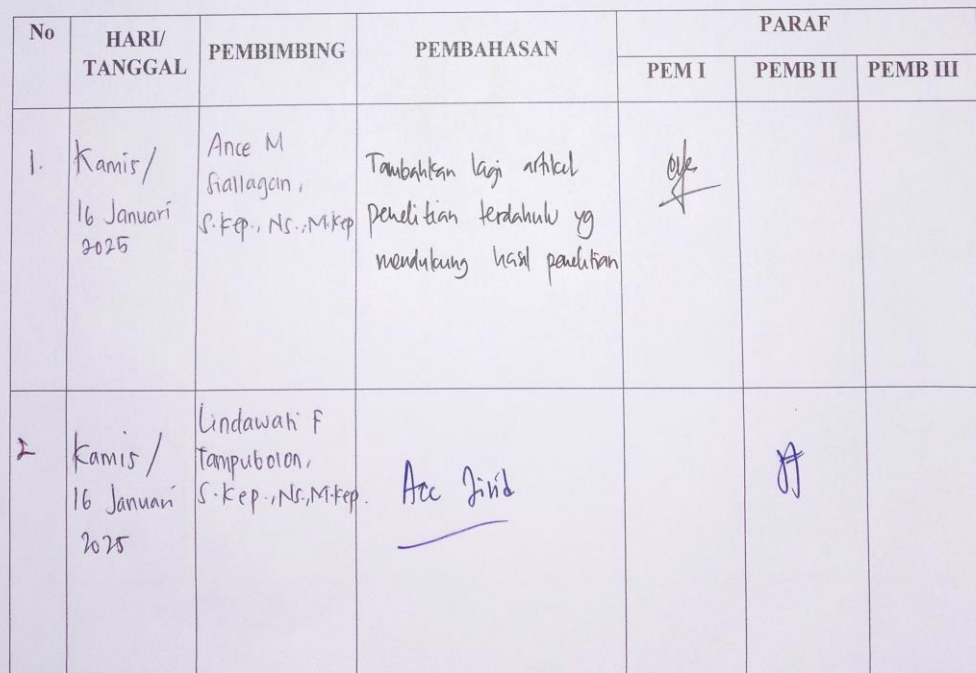 No
HARI/
TANGGAL
PEMBIMBING
PEMBAHASAN
PARAF
PEM I
PEMB II
PEMB III
1.
Kamis/
16 Januari
2025
Ance M
Siallagan,
S.Kep., Ns., M.Kep
Tambahkan lagi artikel
penelitian terdahulu yg
mendukung hasil penelitian
2
Kamis/
16 Januari
2025
Lindawati F
Tampubolon,
S.Kep., Ns., M.Kep.
Acc Jilid